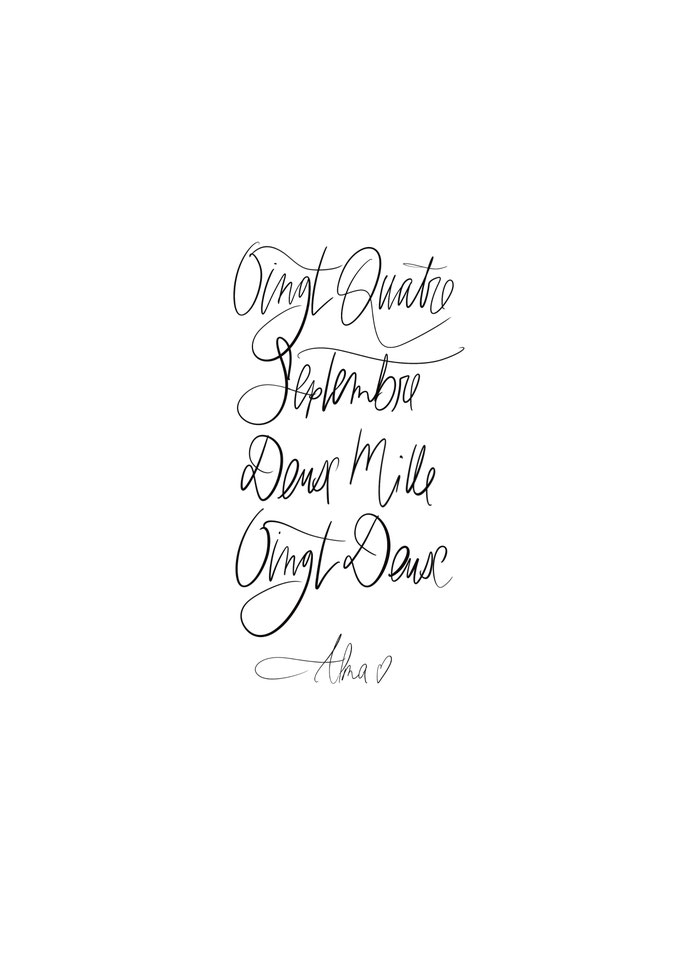 Vingt Quatre
Septembre
Deux Mille
Vingt Deux
Alma ♡